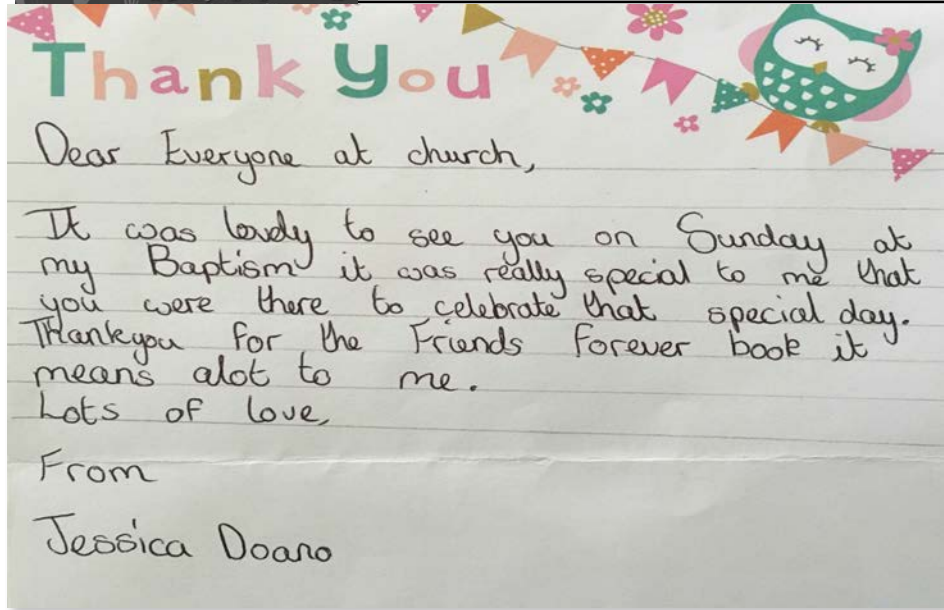 Thank You
Dear Everyone at church,
It was lovely to see you on Sunday at
my Baptism it was really special to me that
you were there to celebrate that special day.
Thankyou for the Friends Forever book it
means alot to me.
Lots of love,
From
Jessica Doano